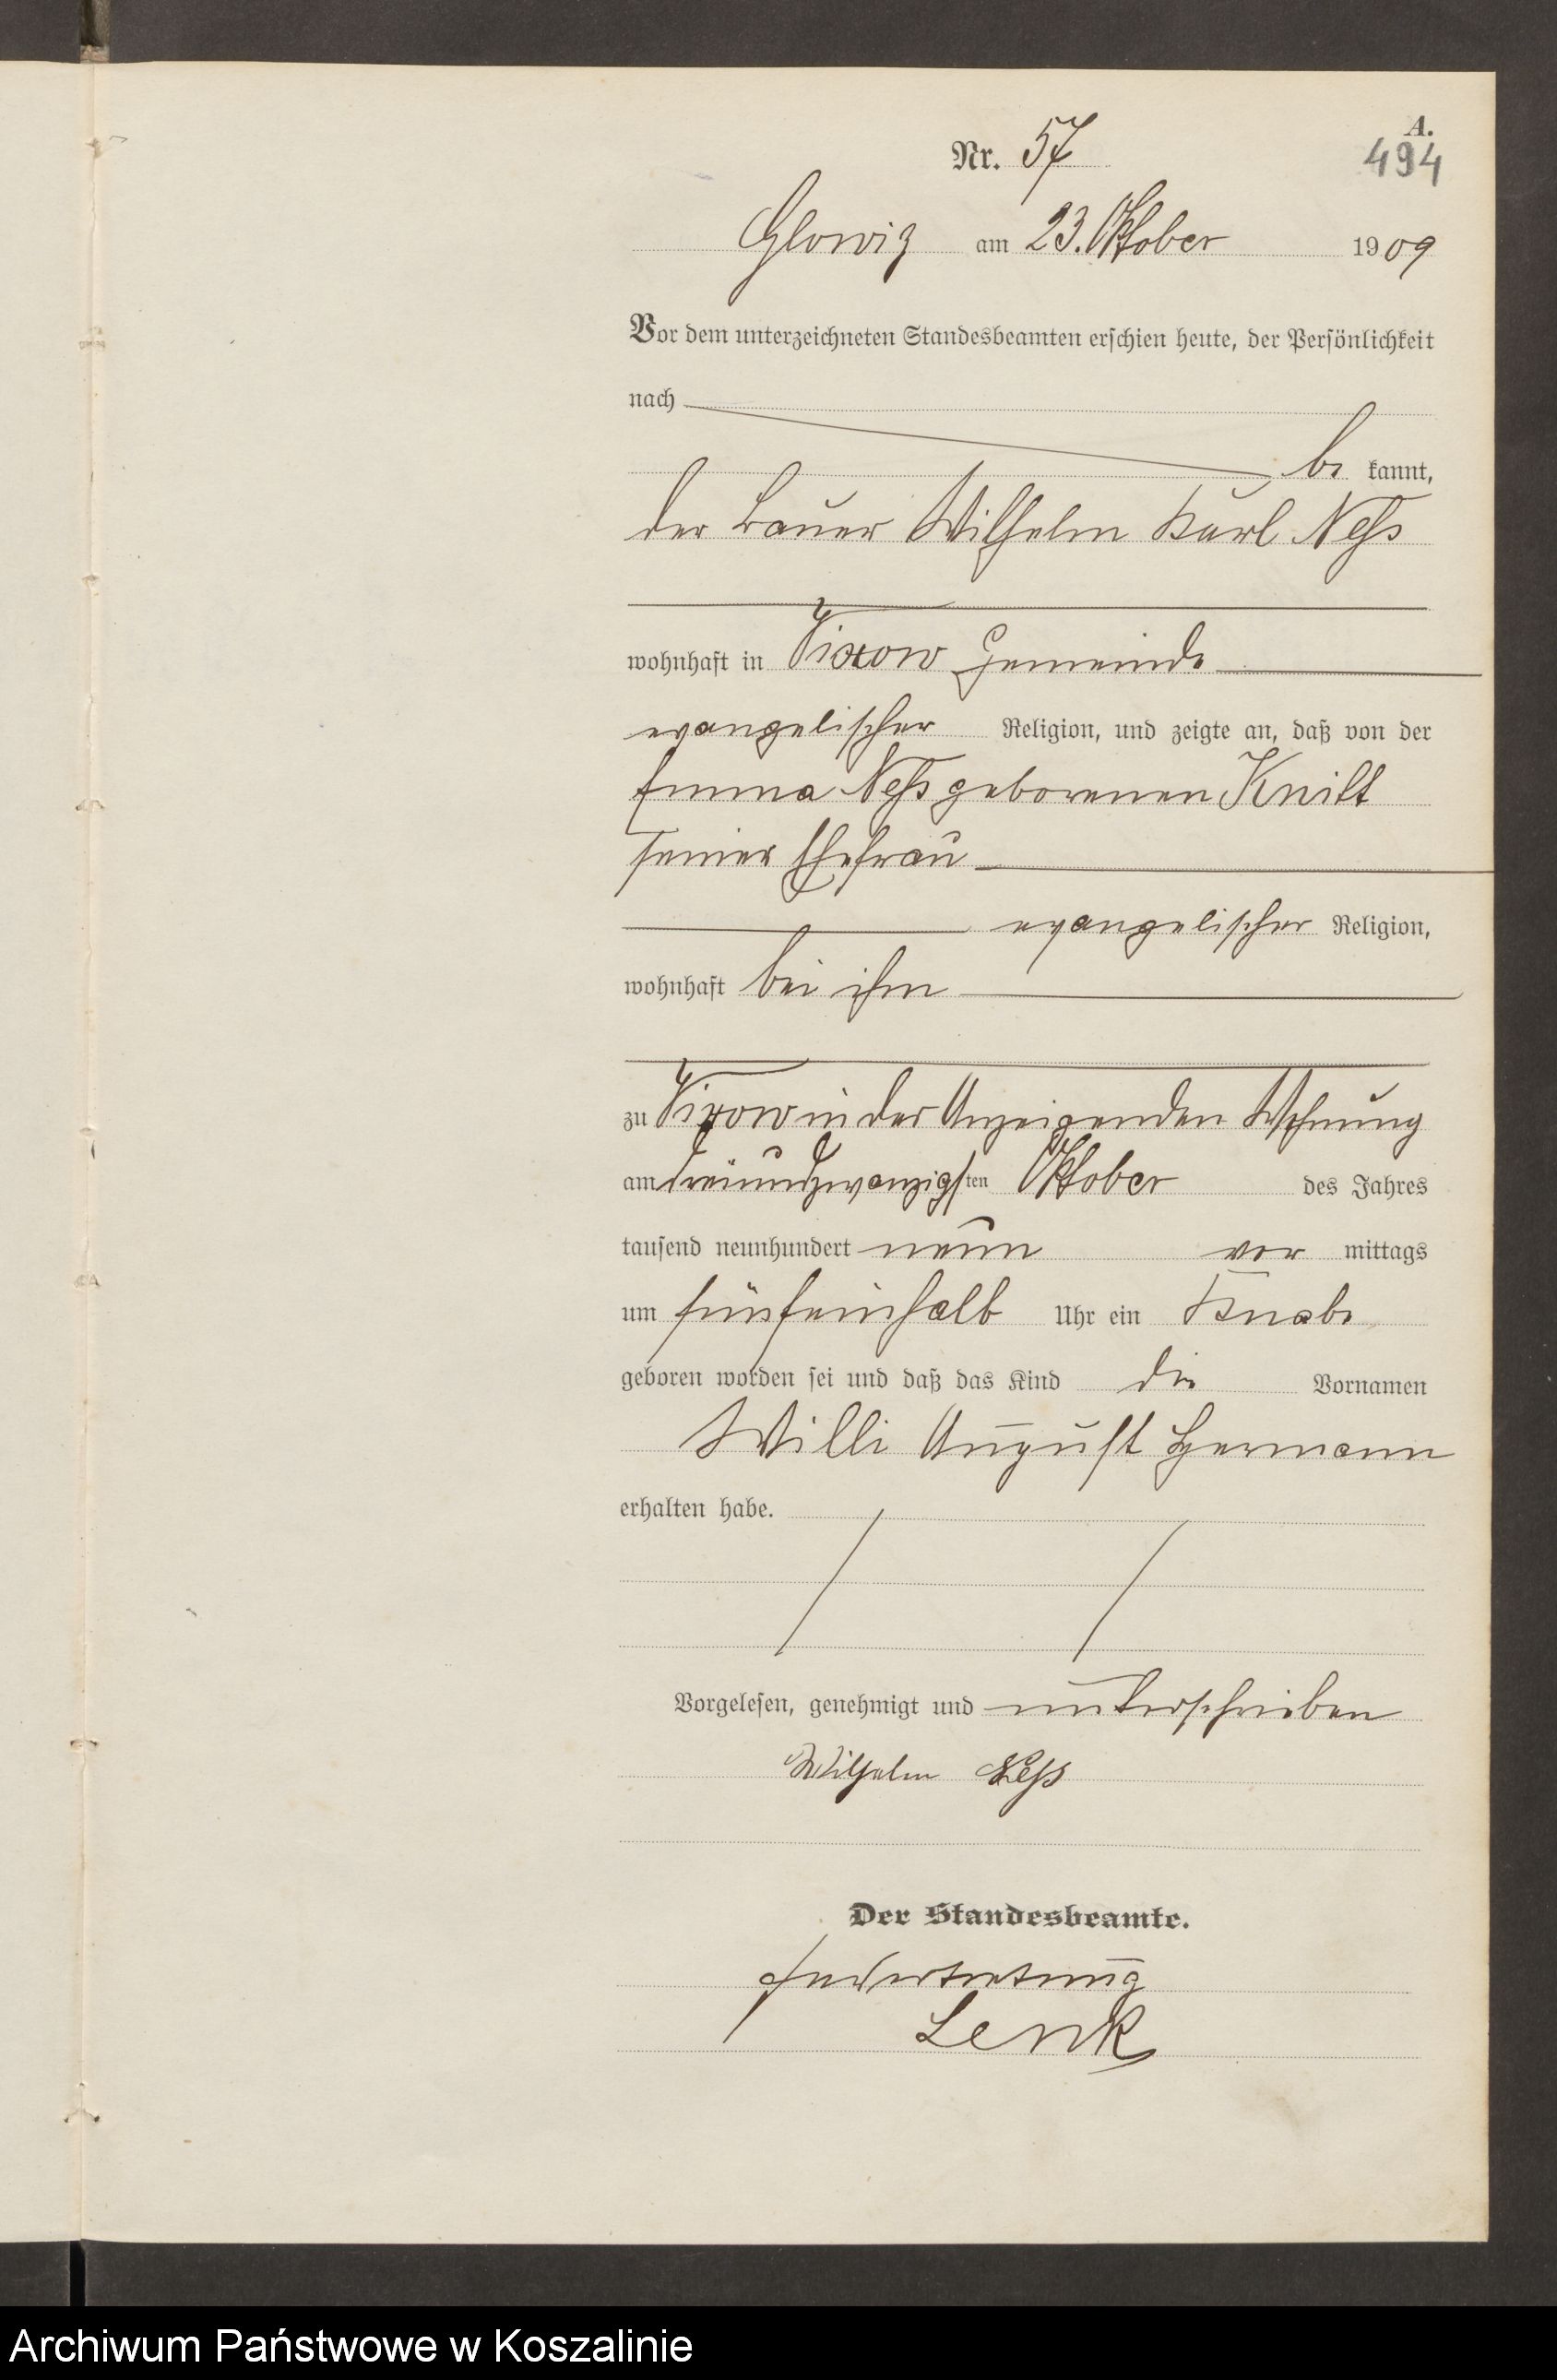 A.
Nr. 57
494
Glowitz am 23. Oktober 1909
Vor dem unterzeichneten Standesbeamten erschien heute, der Persönlichkeit
nach
be kannt,
der Bauer Wilhelm Karl Neß
wohnhaft in Vixow Gemeinde
evangelischer Religion, und zeigte an, daß von der
Emma Neß geborenen
seiner Ehefrau
evangelischer Religion,
wohnhaft bei ihm
zu Vixow in der Anzeigenden Wohnung
am dreiundzwanzigsten Oktober des Jahres
tausend neunhundert neun vor mittags
um fünfeinhalb Uhr ein Knabe
geboren worden sei und daß das Kind die Vornamen
Willi August Hermann
erhalten habe.
Vorgelesen, genehmigt und unterschrieben
Wilhelm Neß
Der Standesbeamte.
In Vertretung
Lenk
Archiwum Państwowe w Koszalinie